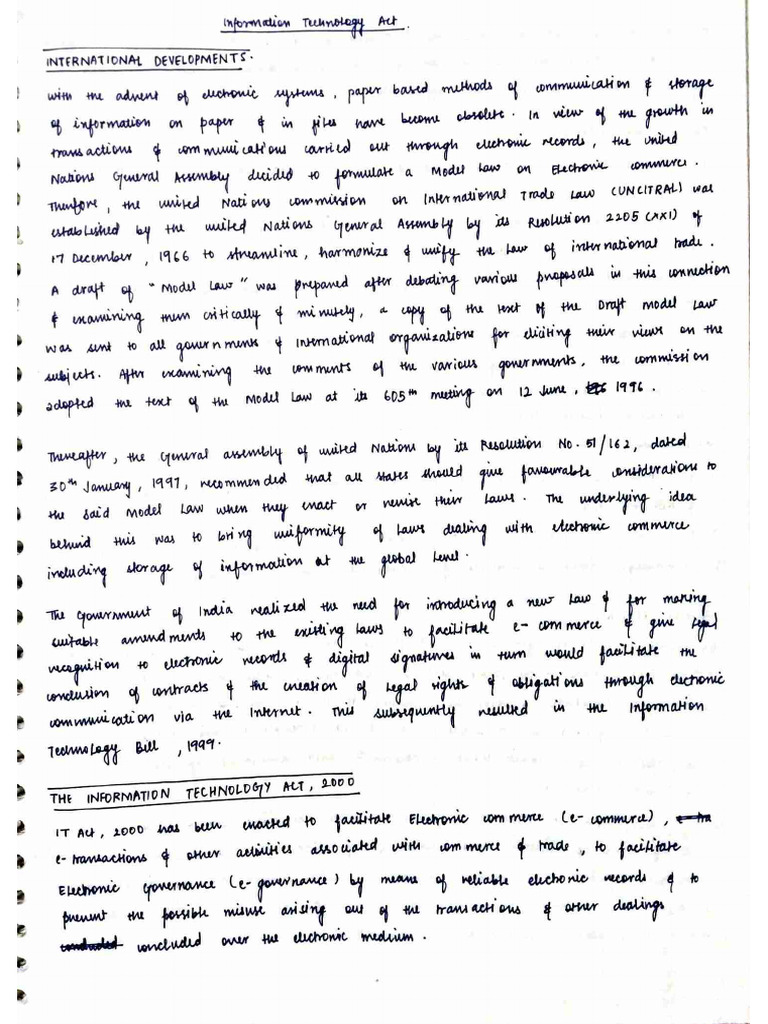 Information Technology Act.
INTERNATIONAL DEVELOPMENTS.
with the advent of electronic systems, paper based methods of communication & storage
of information on paper & in files have become obsolete. In view of the growth in
transactions & communications carried out through electronic records, the united
Nations General Assembly decided to formulate a Model Law on Electronic commerce.
Therefore, the united Nations commission on International Trade Law (UNCITRAL) was
established by the united Nations General Assembly by its Resolution 2205 (XXI) of
17 December, 1966 to streamline, harmonize & unify the Law of international trade.
A draft of "Model Law" was prepared after debating various proposals in this connection
& examining them critically & minutely, a copy of the text of the Draft Model Law
was sent to all governments & International organizations for eliciting their views on the
subjects. After examining the comments of the various governments, the commission
adopted the text of the Model Law at its 605th meeting on 12 June, 1996.
Thereafter, the General assembly of united Nations by its Resolution No. 51/162, dated
30th January, 1997, recommended that all states should give favourable considerations to
the said Model Law when they enact or revise their Laws. The underlying idea
behind this was to bring uniformity of Laws dealing with electronic commerce
including storage of information at the global Level.
The Government of India realized the need for introducing a new Law & for making
suitable amendments to the existing Laws to facilitate e-commerce & give legal
recognition to electronic records & digital signatures in turn would facilitate the
conclusion of contracts & the creation of Legal rights & obligations through electronic
communication via the Internet. This subsequently resulted in the Information
Technology Bill, 1999.
THE INFORMATION TECHNOLOGY ACT, 2000
IT Act, 2000 has been enacted to facilitate Electronic commerce (e-commerce),
e-transactions & other activities associated with commerce & trade, to facilitate
Electronic Governance (e-governance) by means of reliable electronic records & to
prevent the possible misuse arising out of the transactions & other dealings
concluded concluded over the electronic medium.